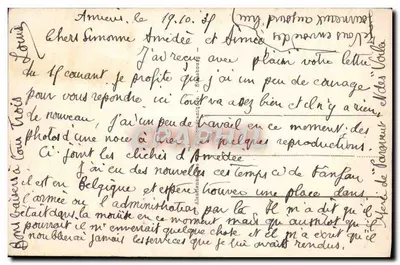 Amiens le 19.10.35
Chers Simonne Amédée et Aimée
J'ai reçu avec plaisir votre lettre
du 15 courant, je profite que j'ai un peu de courage
pour vous repondre, ici tout va assez bien et il n'y a rien
de nouveau. J'ai un peu de travail en ce moment: des
photos d'une noce à et quelques reproductions.
Ci joint les clichés d'Amédée
J'ai eu des nouvelles ces temps ci de
il est en Belgique et espère trouver une place dans
l'armée ou l'administration par là. Il m'a dit qu'il
était dans la mouise en ce moment mais qu'aussitôt qu'il
pourrait il m'enverrait quelque chose et il m'a écrit qu'il
n'oublierait jamais les services que je lui avais rendus.
Bons baisers à tous trois
Louis
je vous envoi des
journeaux aujourd'hui
et des "Voilà"